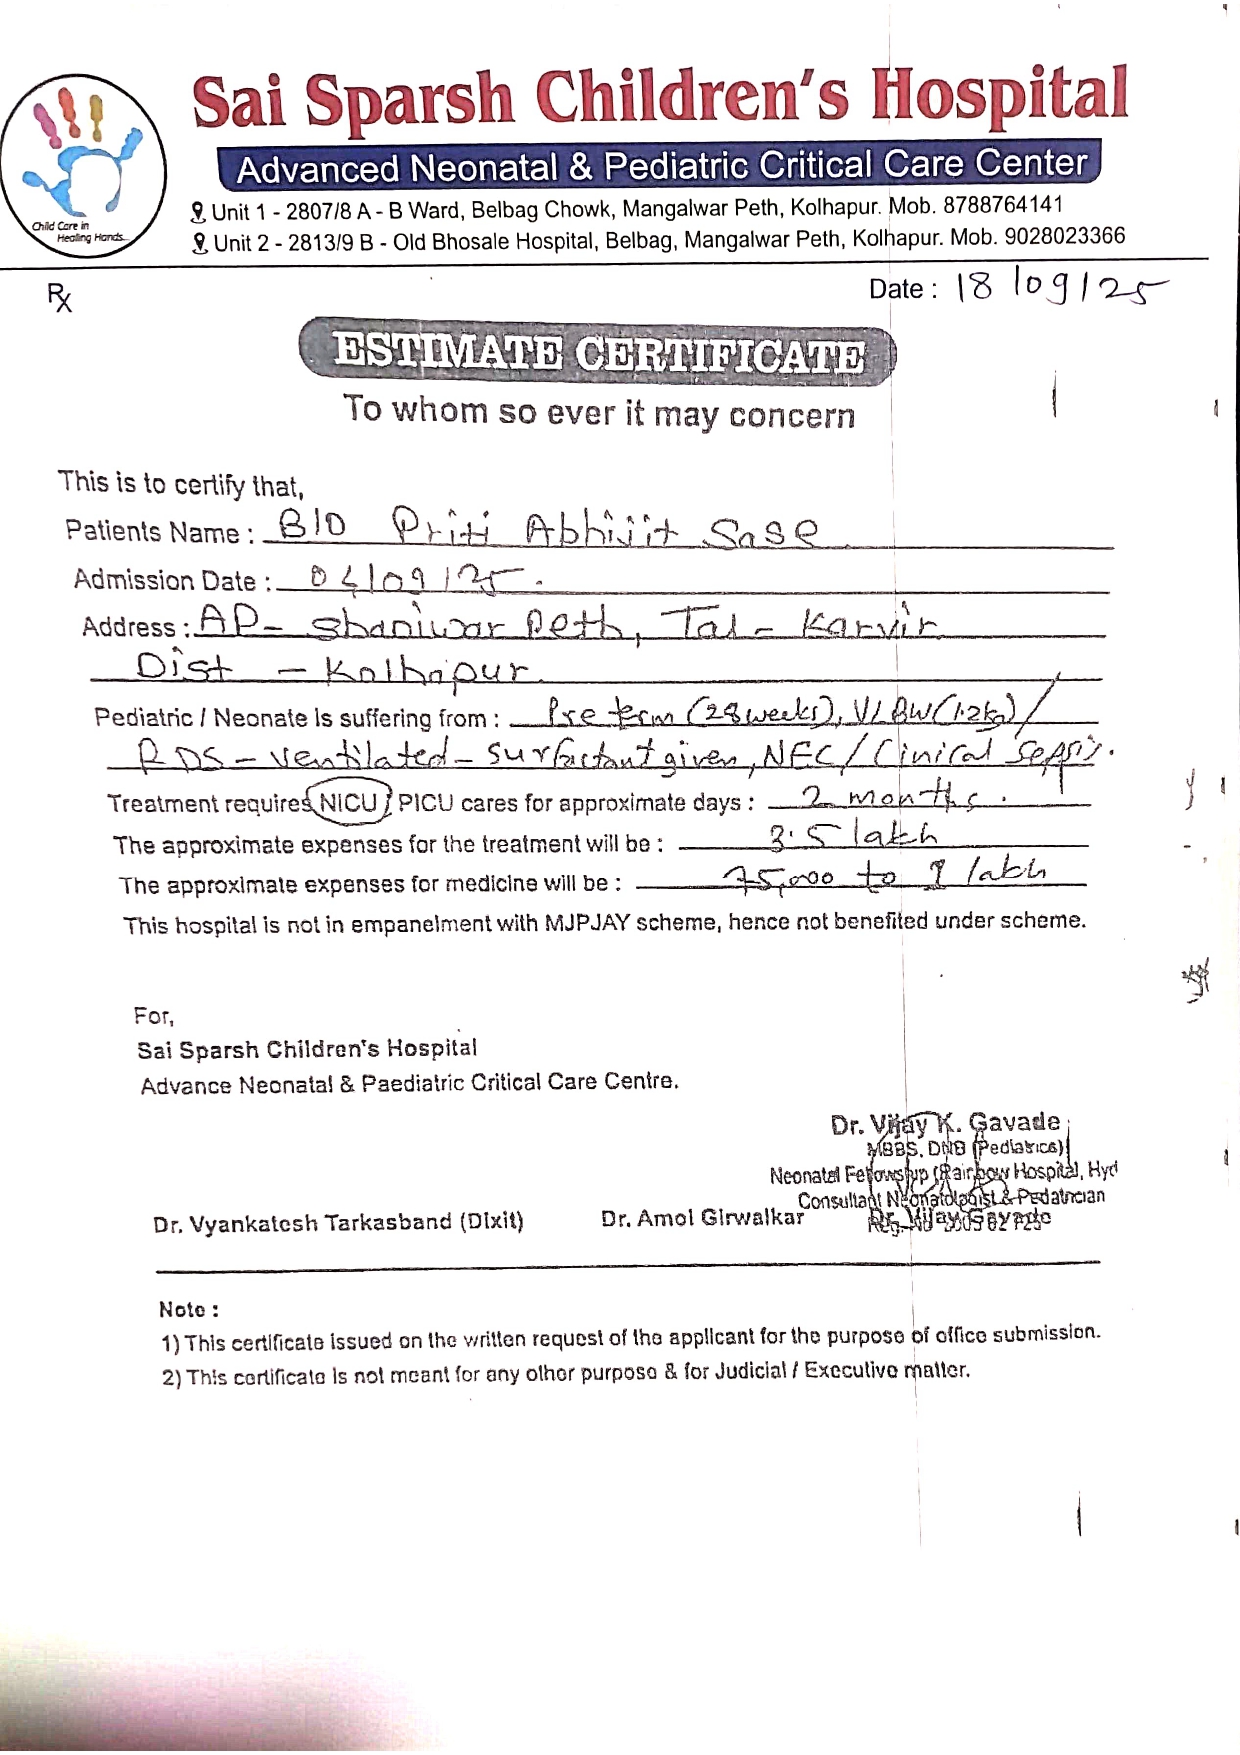 Sai Sparsh Children's Hospital
Advanced Neonatal & Pediatric Critical Care Center
Child Care in
Healing Hands
Unit 1 - 2807/8 A - B Ward, Belbag Chowk, Mangalwar Peth, Kolhapur. Mob. 8788764141
Unit 2 - 2813/9 B - Old Bhosale Hospital, Belbag, Mangalwar Peth, Kolhapur. Mob. 9028023366
Rx
Date : 18/09/25
ESTIMATE CERTIFICATE
To whom so ever it may concern
This is to certify that,
Patients Name : B/O Priti Abhijit Sase
Admission Date : 04/09/25.
Address : AP- Shaniwar Peth, Tal - Karvir
Dist - Kolhapur
Pediatric / Neonate is suffering from : Pre term (28 weeks), VLBW (1.2kg) /
RDS - Ventilated - surfactant given, NEC / Clinical Sepsis.
Treatment requires NICU / PICU cares for approximate days : 2 months.
The approximate expenses for the treatment will be : 3.5 lakh
The approximate expenses for medicine will be : 75,000 to 1 lakh
This hospital is not in empanelment with MJPJAY scheme, hence not benefited under scheme.
For,
Sai Sparsh Children's Hospital
Advance Neonatal & Paediatric Critical Care Centre.
Dr. Vijay K. Gavade
MBBS, DNB (Pediatrics)
Neonatal Fellowship (Rainbow Hospital, Hyd
Consultant Neonatologist & Pediatrician
Dr. Vyankatesh Tarkasband (Dixit) Dr. Amol Girwalkar Dr. Vijay Gavade
Note :
1) This certificate issued on the written request of the applicant for the purpose of office submission.
2) This certificate is not meant for any other purpose & for Judicial / Executive matter.